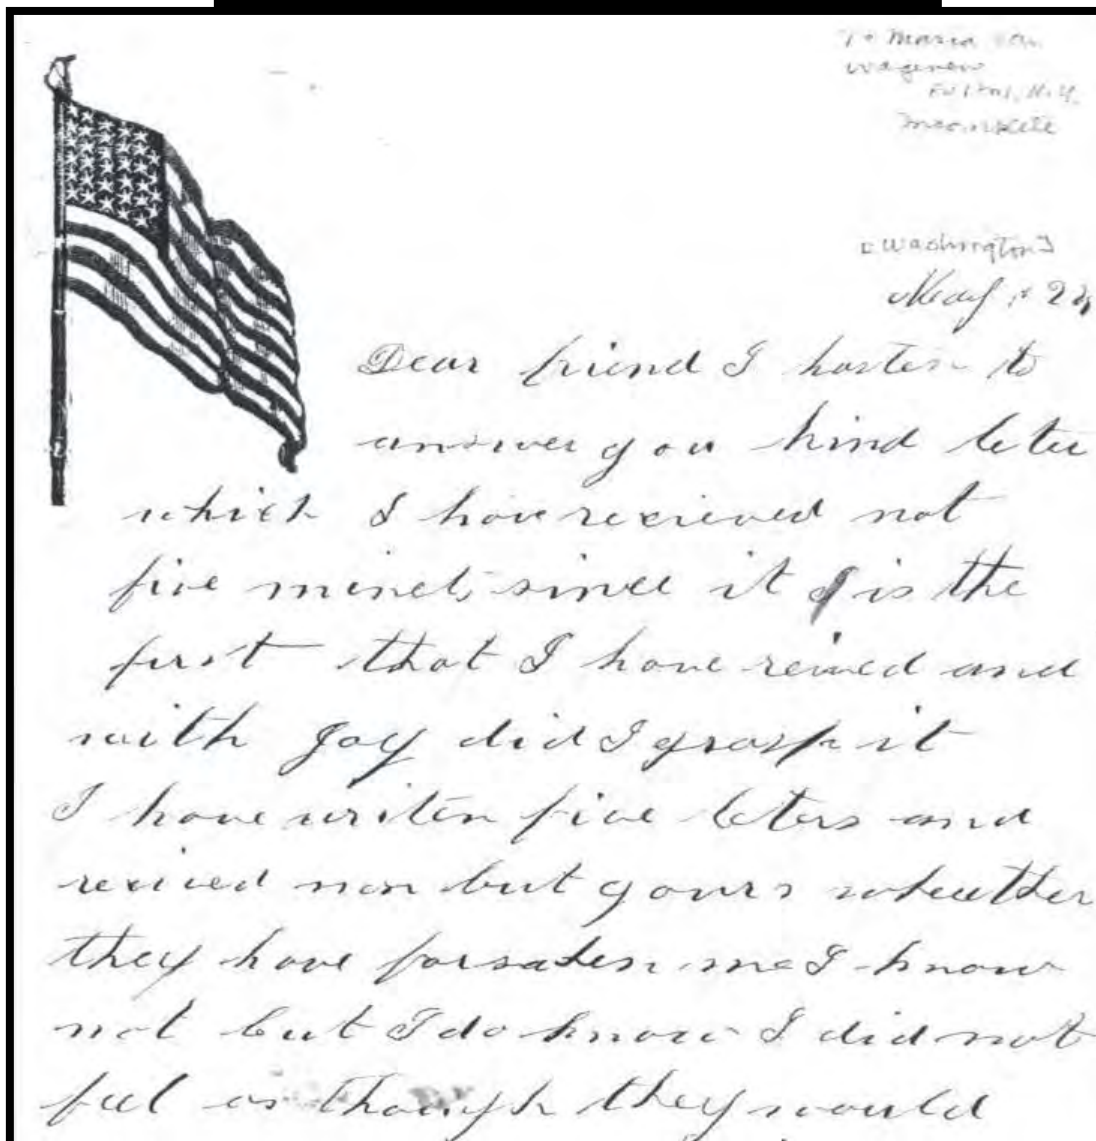 To Maria Van
Wagenen
Fulton, N.Y.
Incomplete
[Washington]
May 24
Dear friend I hasten to
answer you kind leter
which I have recieved not
five minets since it is the
first that I have reived and
with Joy did I grasp it
I have writen five leters and
rexived non but yours wheuther
they have forsaken me I know
not but I do know I did not
feel as though they would